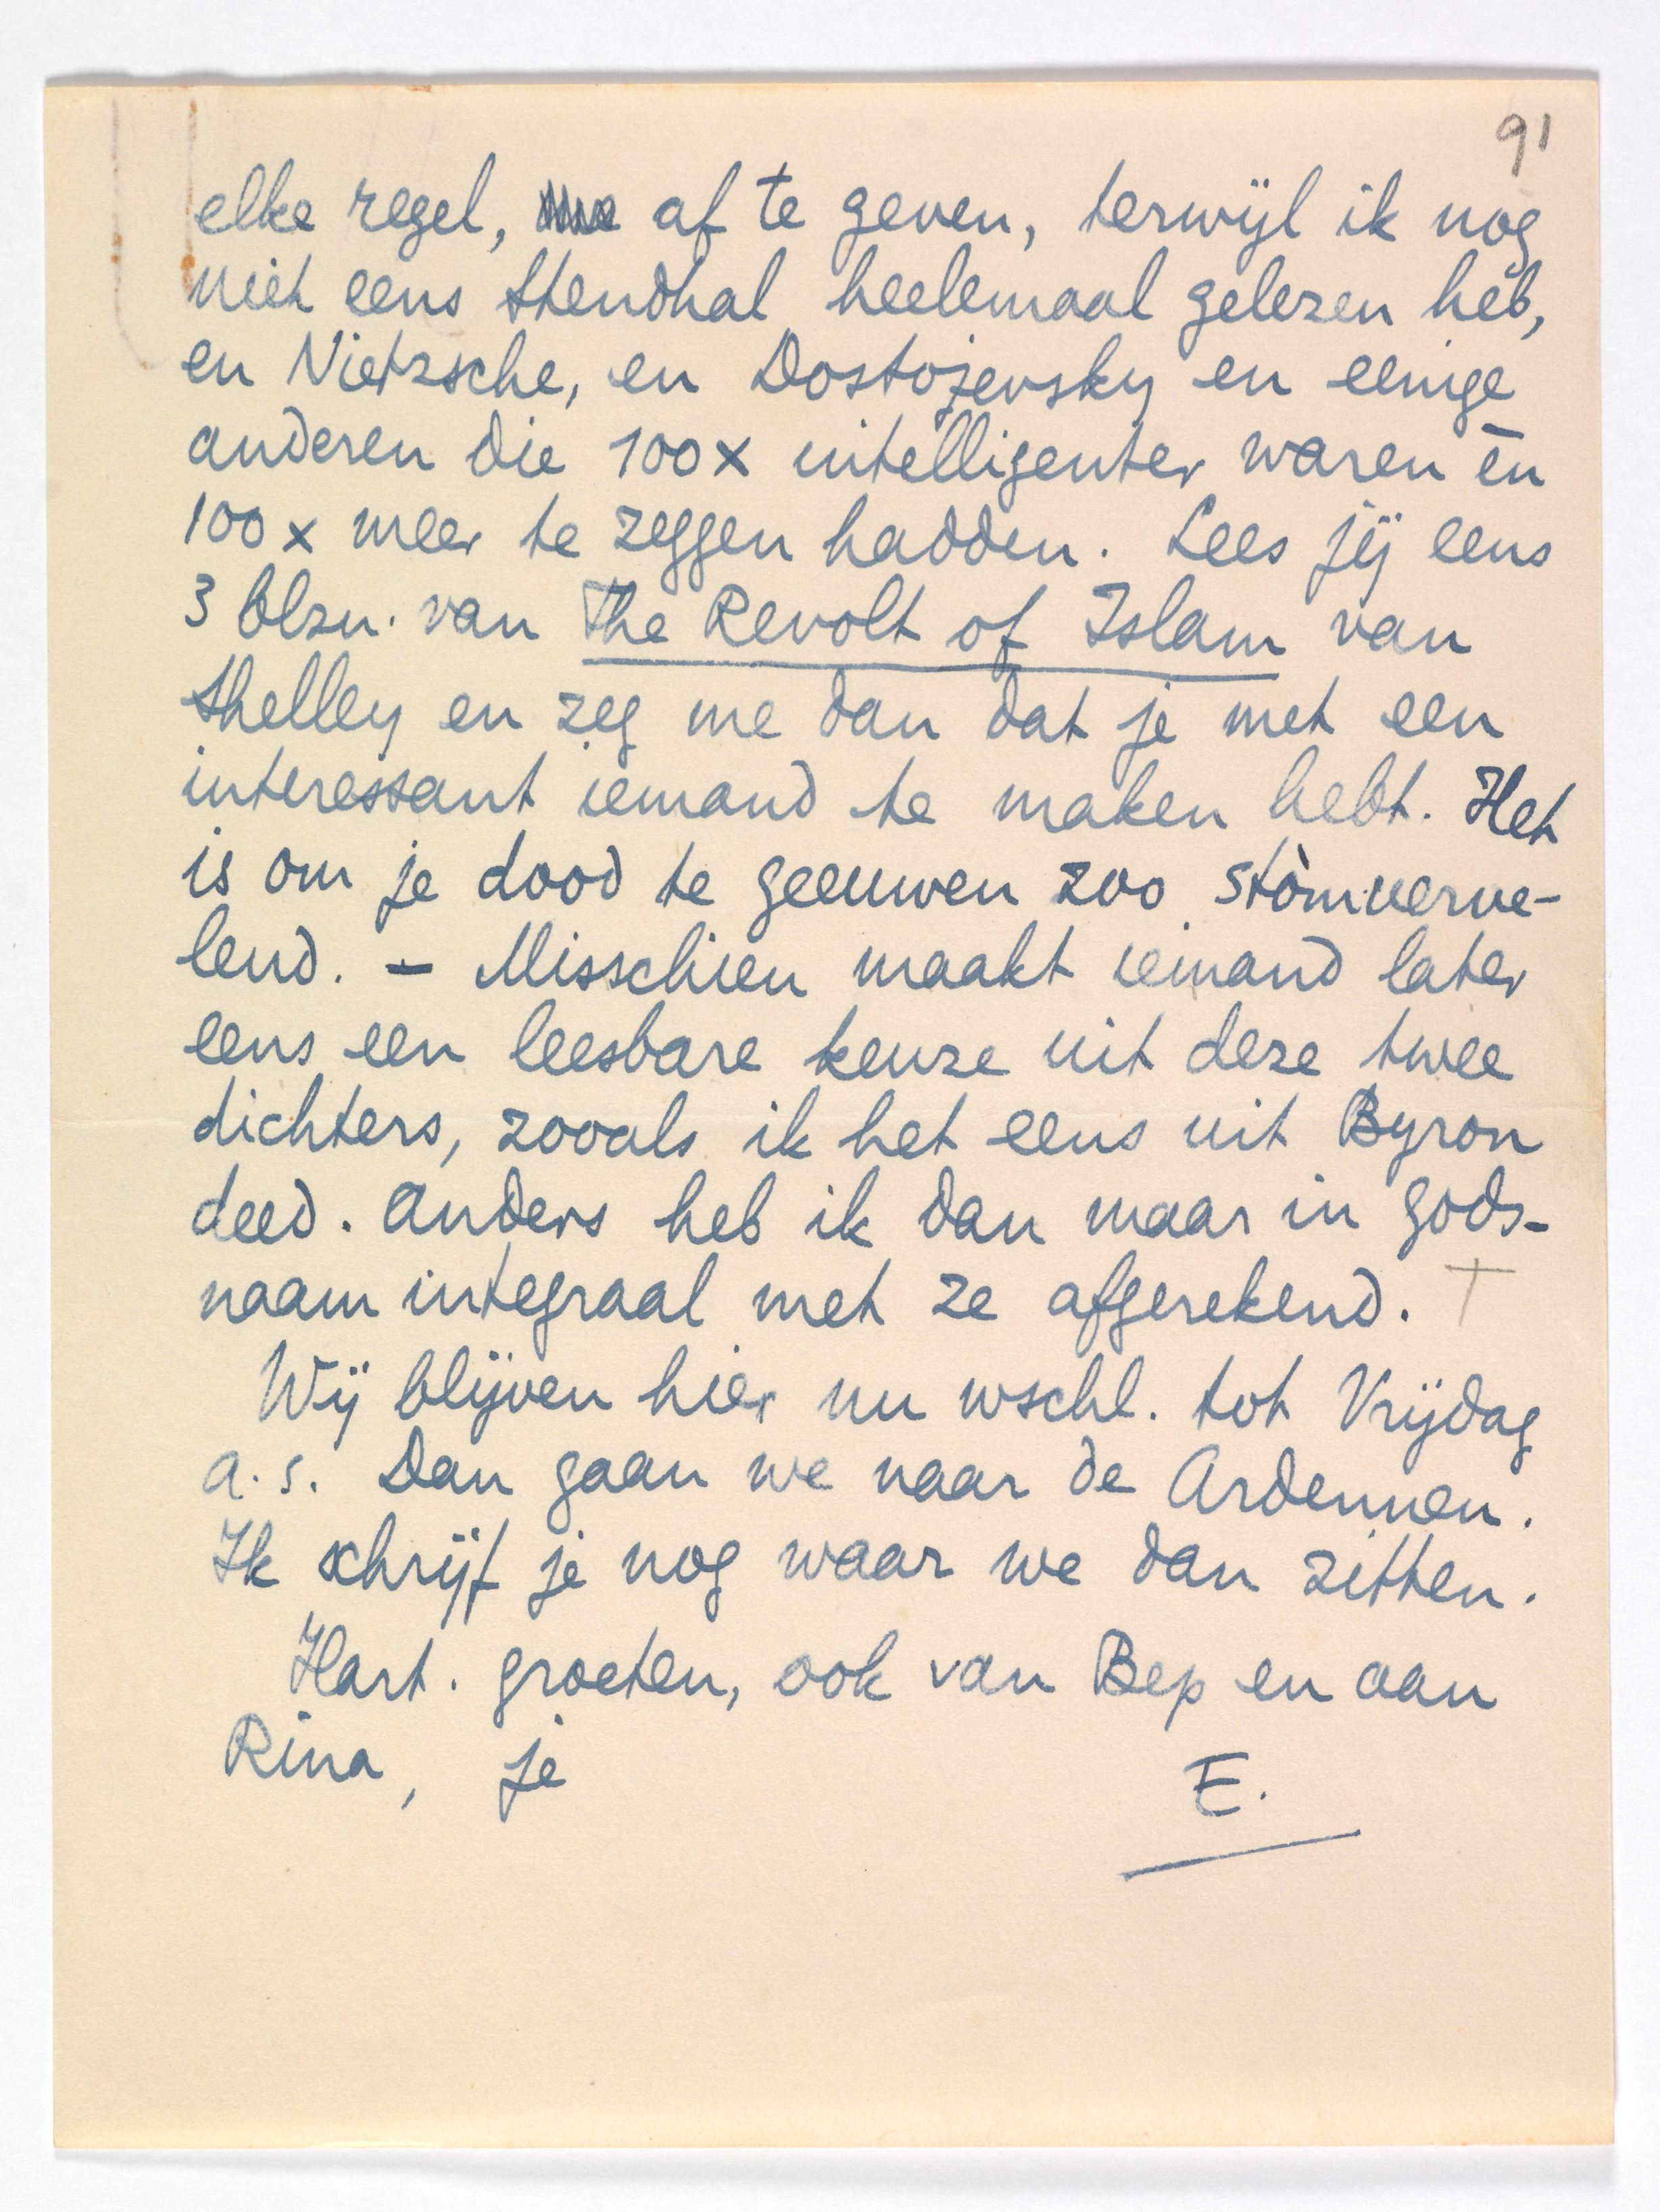 91
elke regel, af te geven, terwijl ik nog
niet eens Stendhal heelemaal gelezen heb,
en Nietzsche, en Dostojevsky en eenige
anderen die 100x intelligenter waren èn
100x meer te zeggen hadden. Lees jij eens
3 blzn. van The Revolt of Islam van
Shelley en zeg me dan dat je met een
interessant iemand te maken hebt. Het
is om je dood te geeuwen zoo stòmverve-
lend. – Misschien maakt iemand later
eens een leesbare keuze uit deze twee
dichters, zooals ik het eens uit Byron
deed. Anders heb ik dan maar in gods-
naam integraal met ze afgerekend. †
Wij blijven hier nu wschl. tot Vrijdag
a.s. Dan gaan we naar de Ardennen.
Ik schrijf je nog waar we dan zitten.
Hart. groeten, ook van Bep en aan
Rina, je
E.